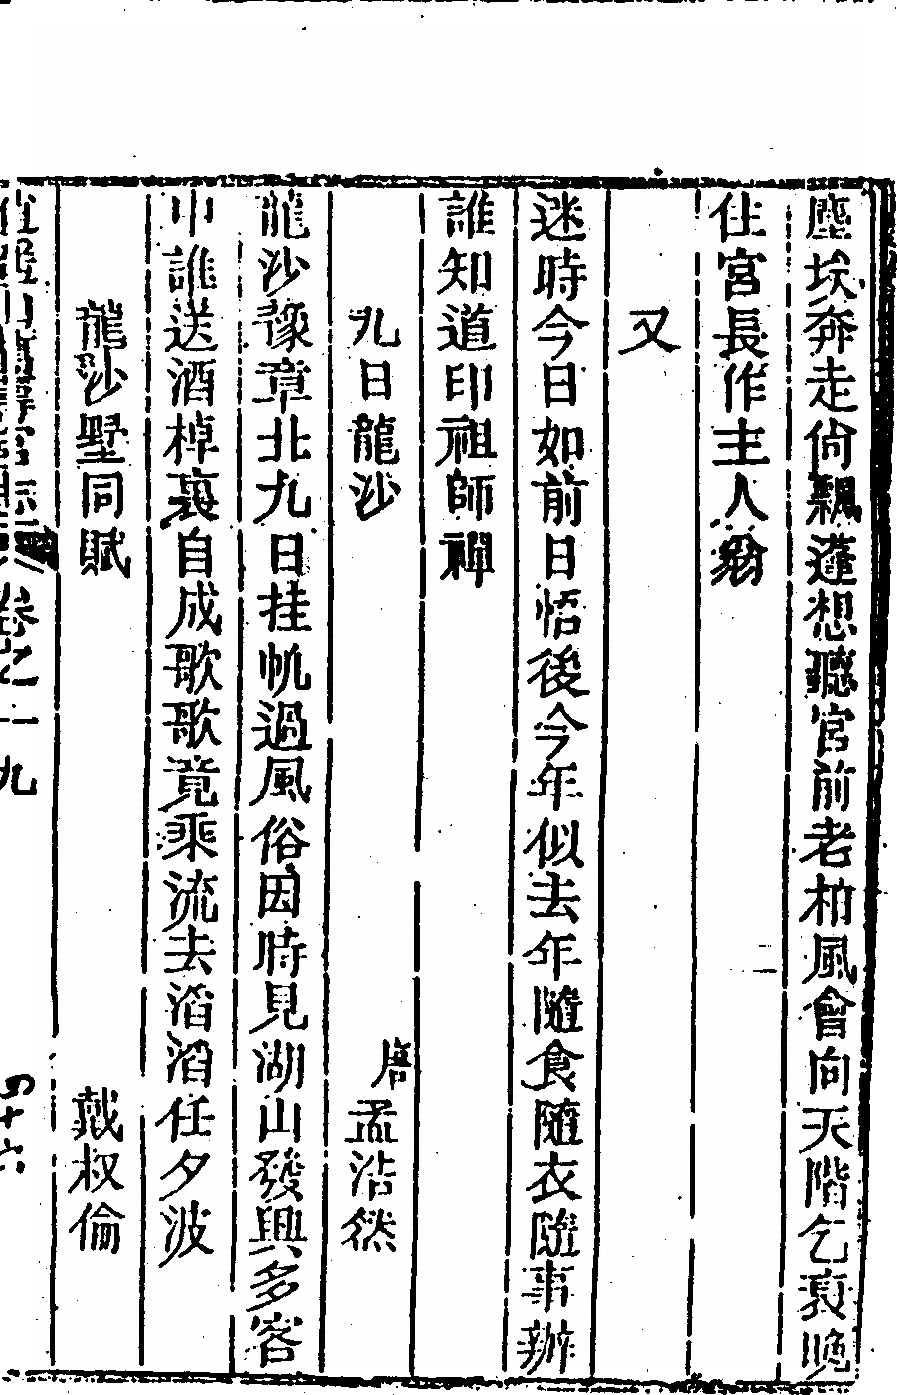 塵埃奔走尙飄蓬想聽官前老柏風會向天階乞衰晚
住宮長作主人翁
又
迷時今日如前日悟後今年似去年隨食隨衣隨事辦
誰知道印祖師禪
九日龍沙 唐孟浩然
龍沙豫章北九日挂帆過風俗因時見湖山發興多客
中誰送酒棹裏自成歌歌竟乘流去滔滔任夕波
龍沙墅同賦 戴叔倫
卷之一九
四十六